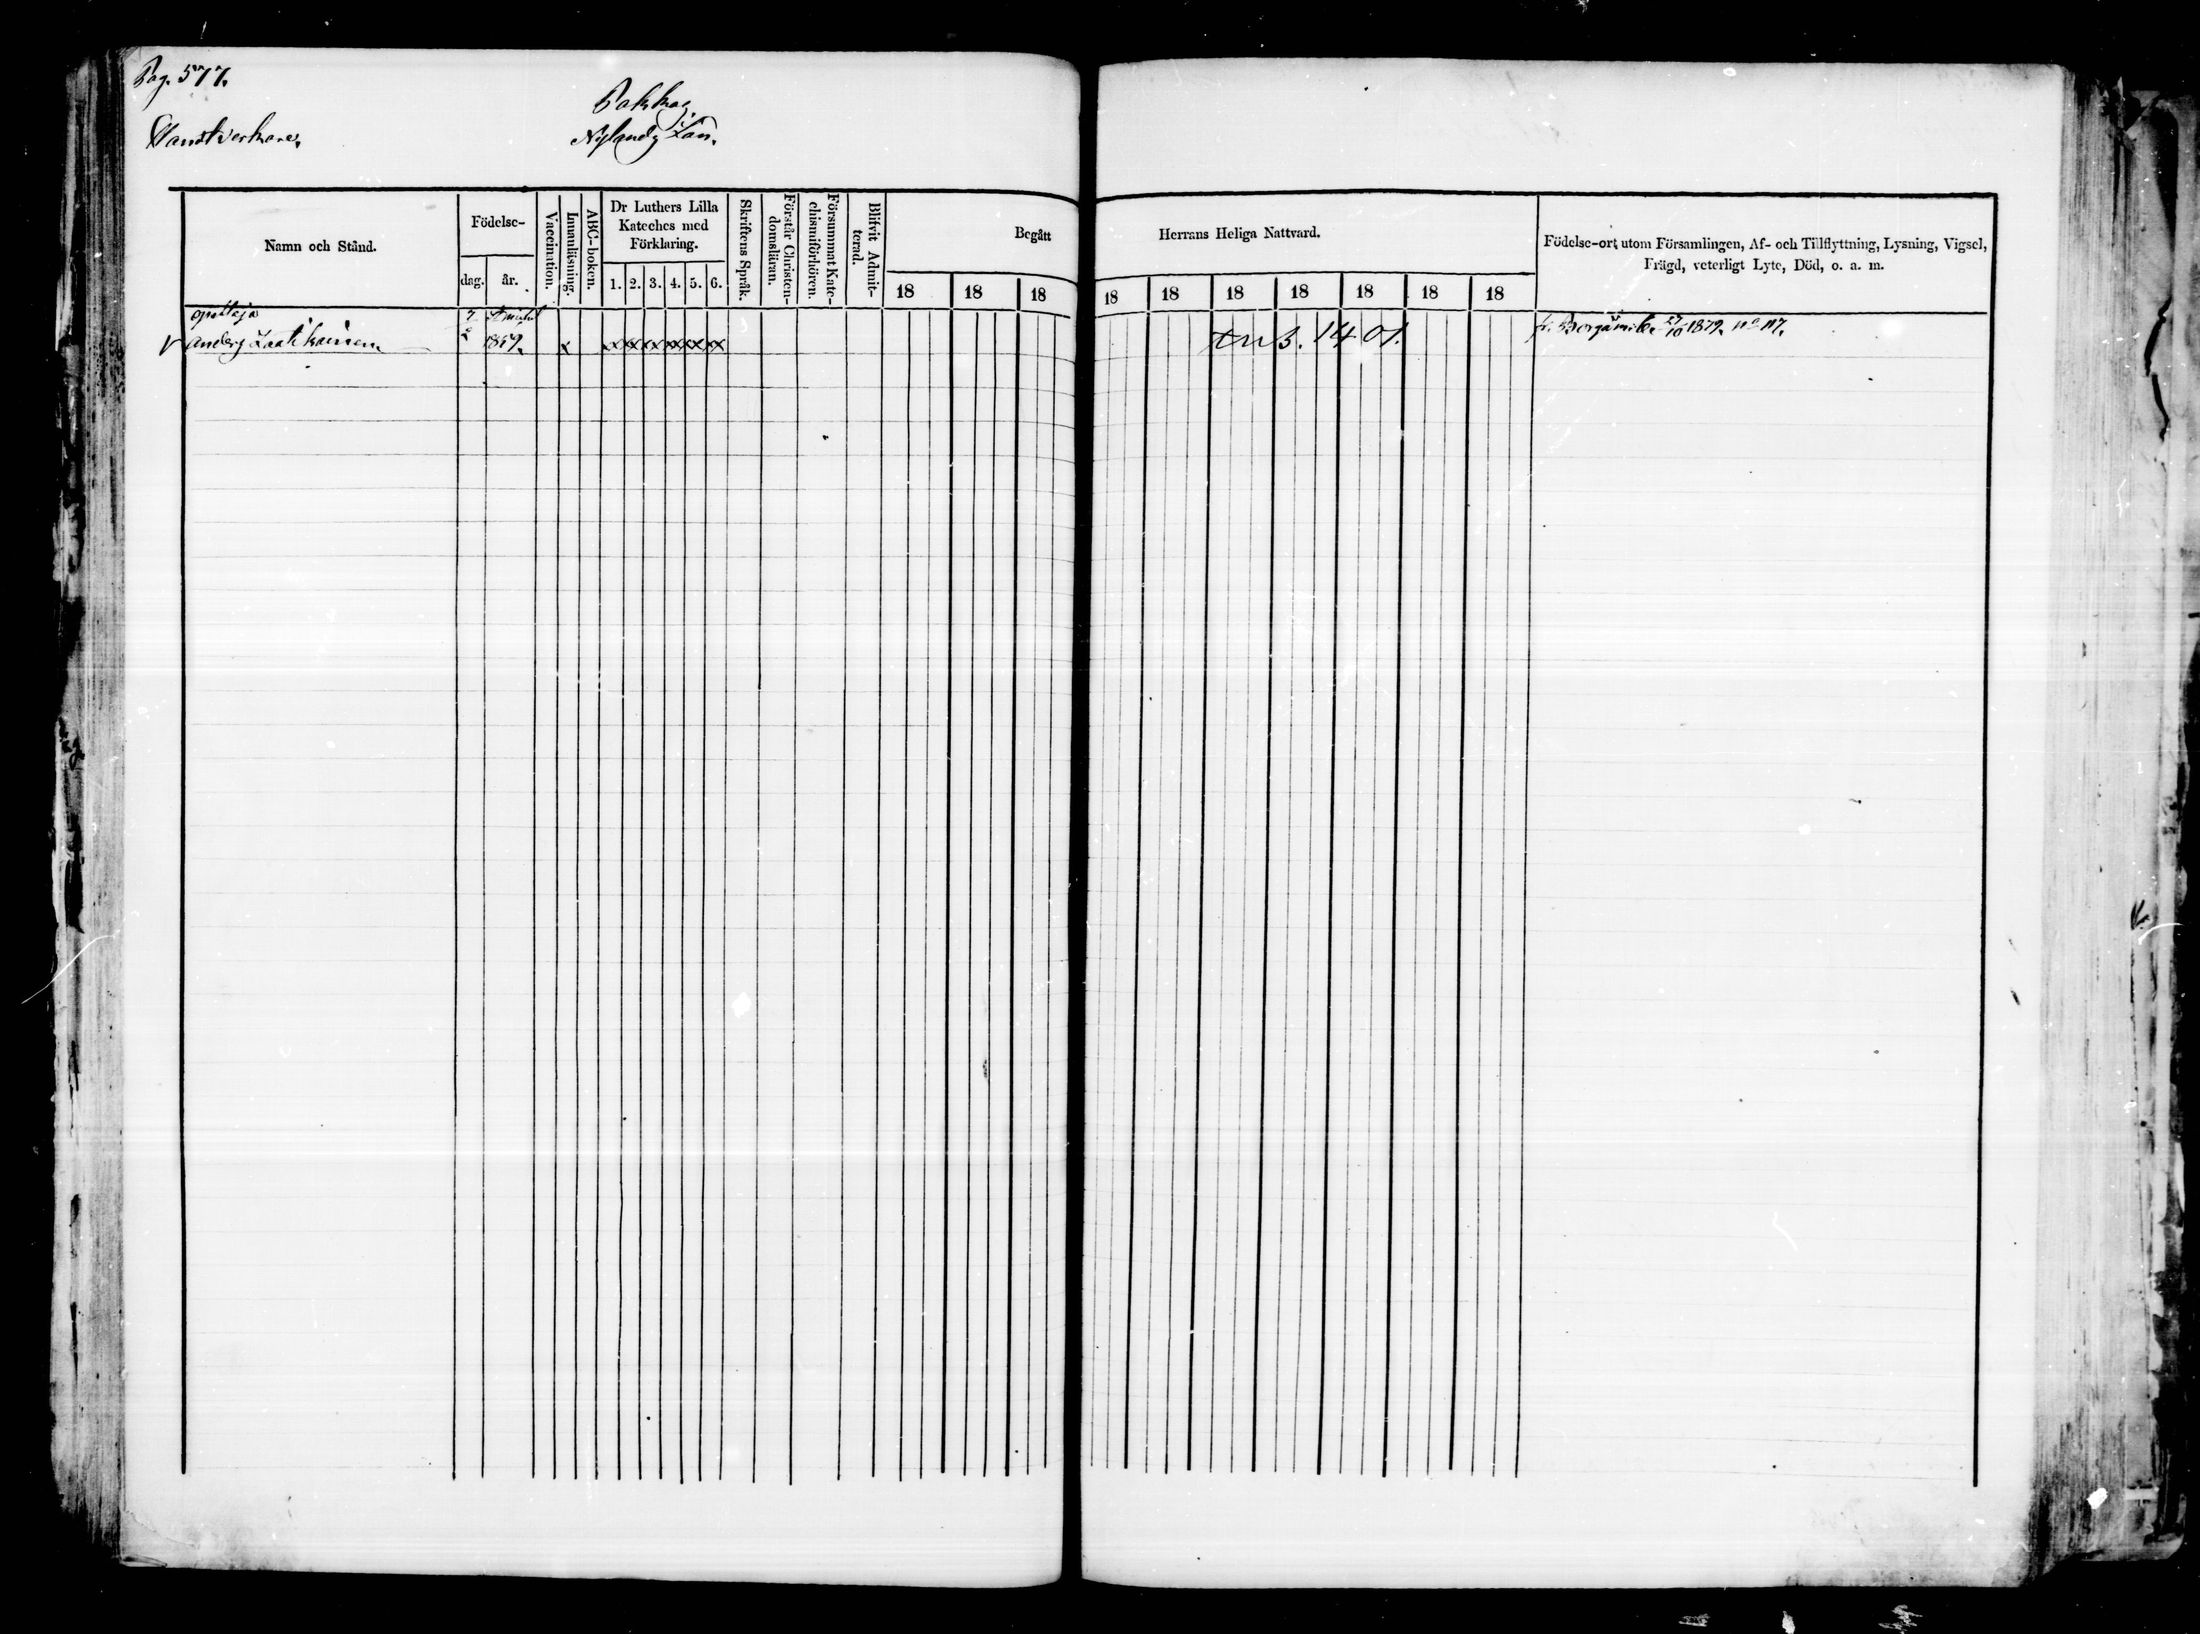 Pag. 577.
Handtverkare.
Nylands Län.
Namn och Stånd.
Födelse-
dag.
år.
Vaccination.
Innanläsning.
ABC-boken.
Dr Luthers Lilla
Kateches med
Förklaring.
1. 2. 3. 4. 5. 6.
Skriftens Språk.
Förstår Christen-
domsläran.
Försummat Kate-
chismiförhören.
Blifvit Admit-
terad.
Begått Herrans Heliga Nattvard.
18 18 18 18 18 18 18 18 18 18
Födelse-ort utom Församlingen, Af- och Tillflyttning, Lysning, Vigsel,
Frägd, veterligt Lyte, Död, o. a. m.
Anders Laatikainen
1859.
x xx xx xx xx xx xx
1401.
fr. Borgå 27/10 1879. no 117.